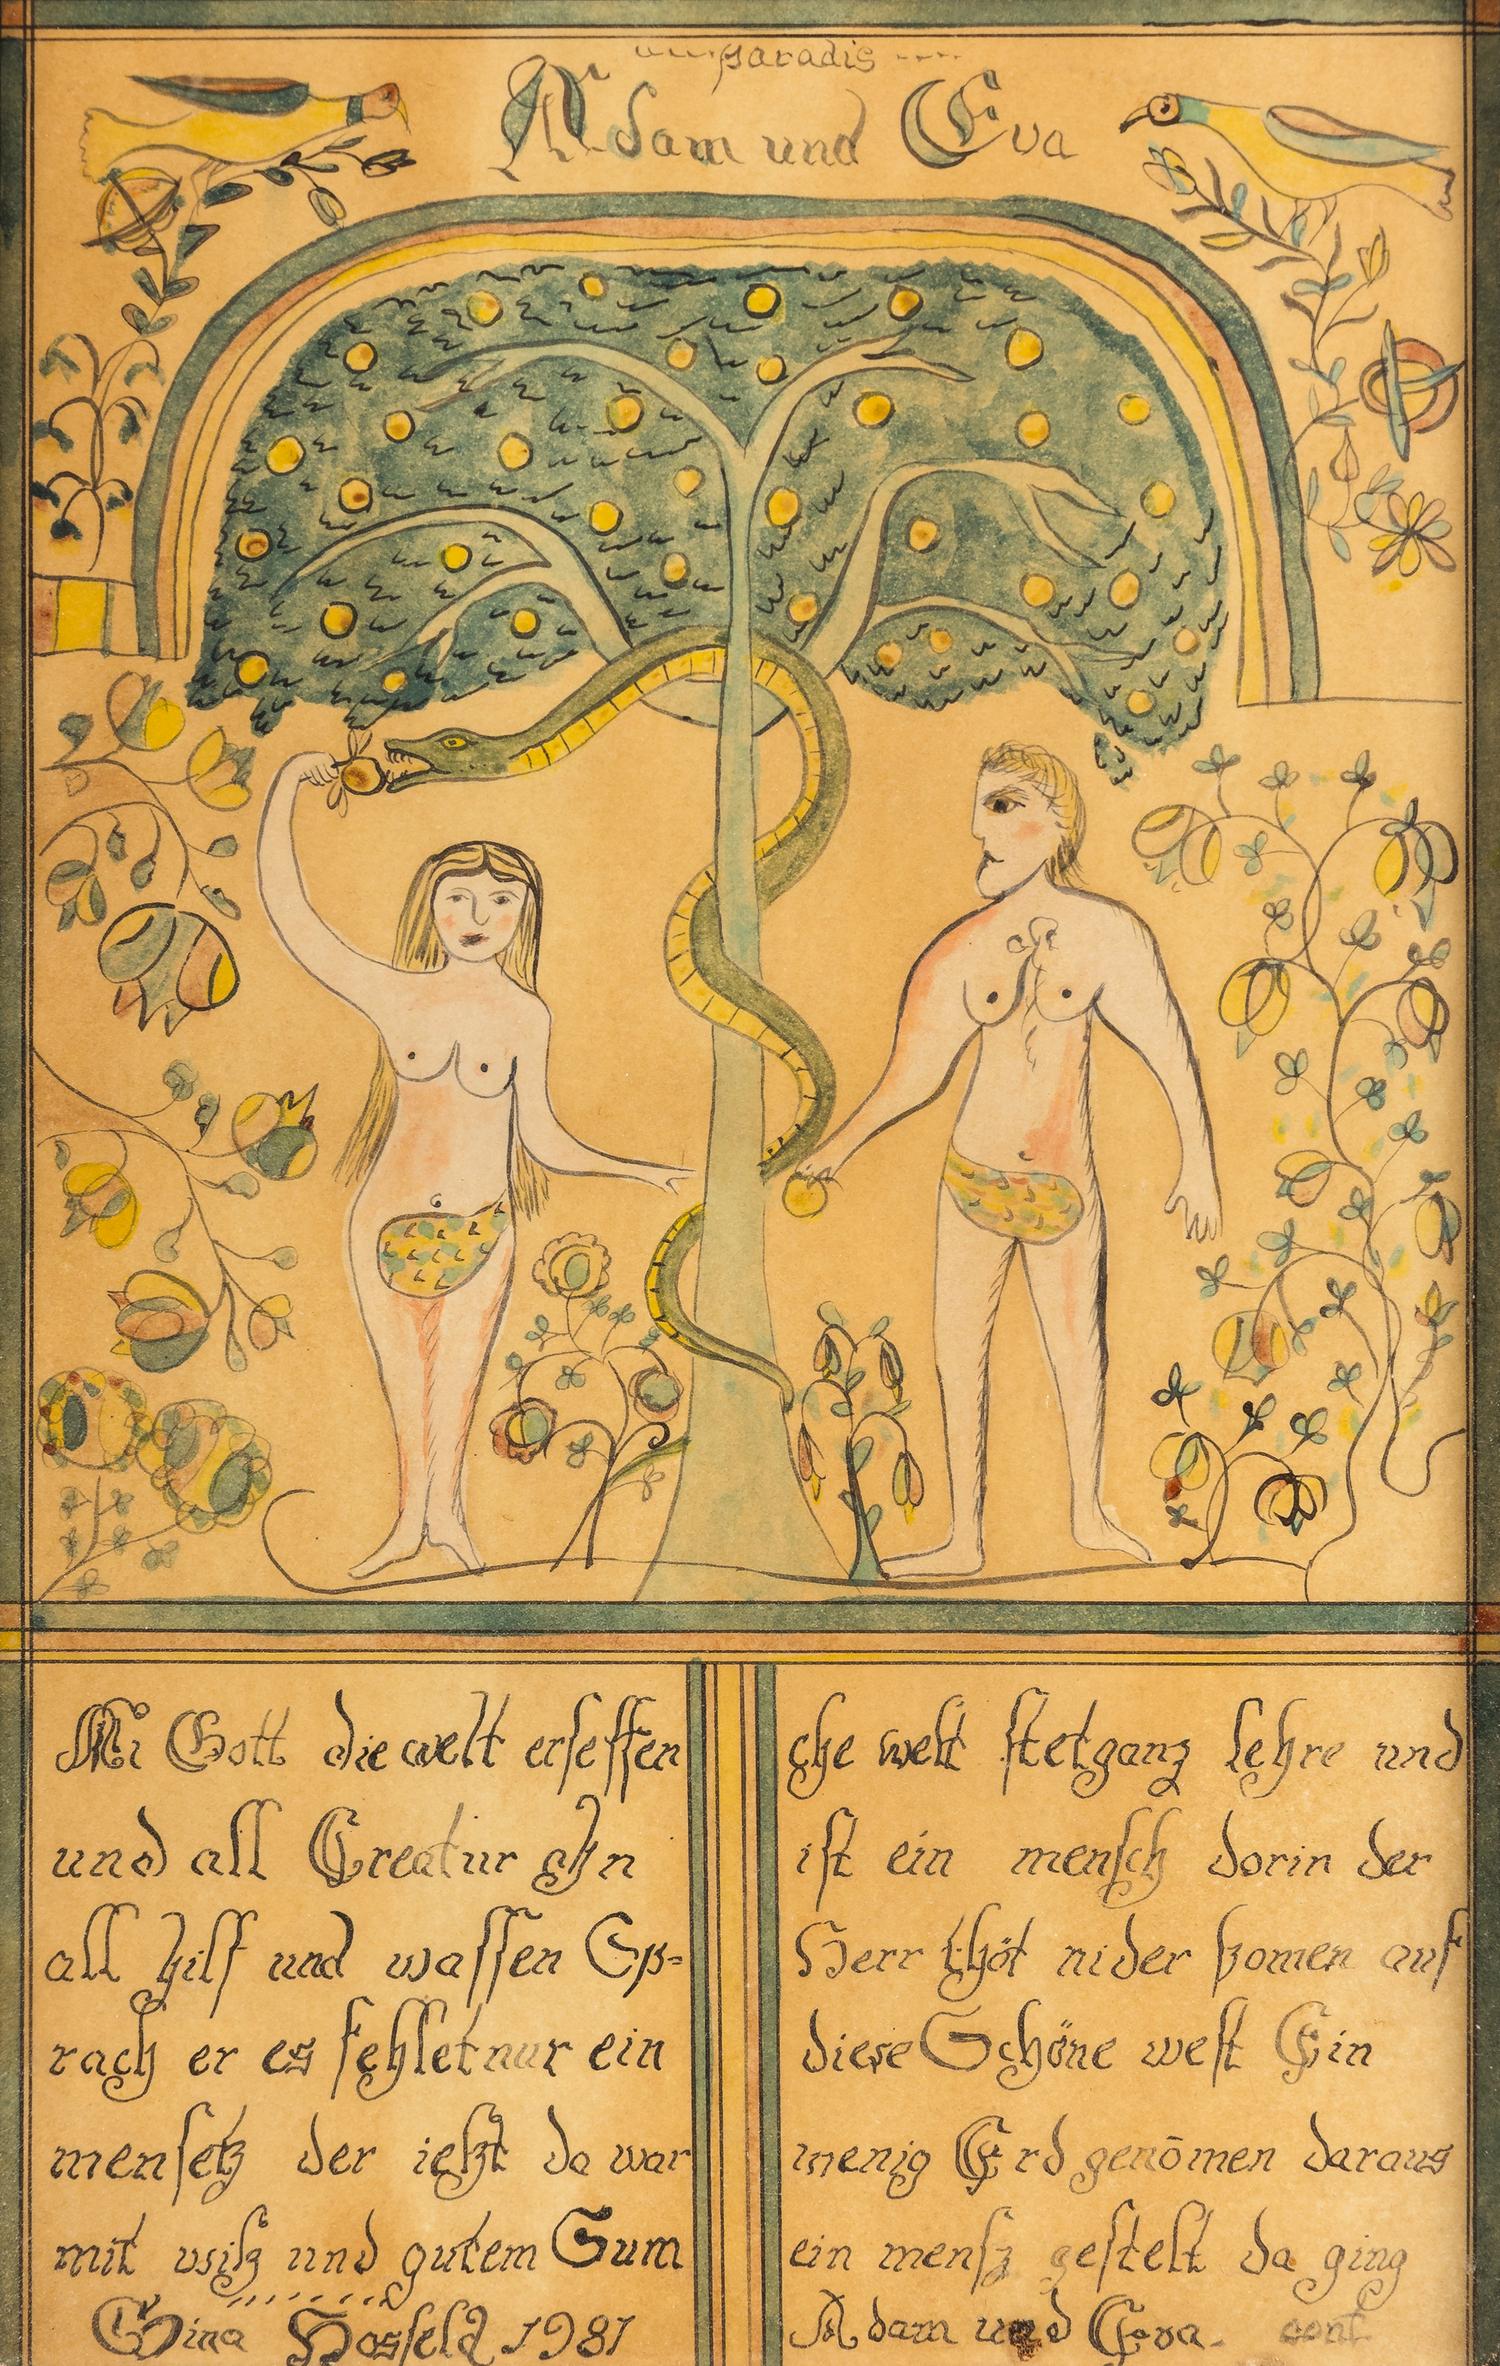 paradis
Adam und Eva
Mi Gott die welt erseffen
und all Creatur ghn
all hilf und wassen Sp-
rach er es fehlet nur ein
mensetz der ietzt da war
mit witz und gutem Sum
Gina Hosfeld 1981
che welt stet ganz lehre und
ist ein mensch dorin der
Herr thöt nider komen auf
diese Schöne welt Ein
wenig Erd genōmen daraus
ein mensz gestelt da ging
Adam und Eva. cont.